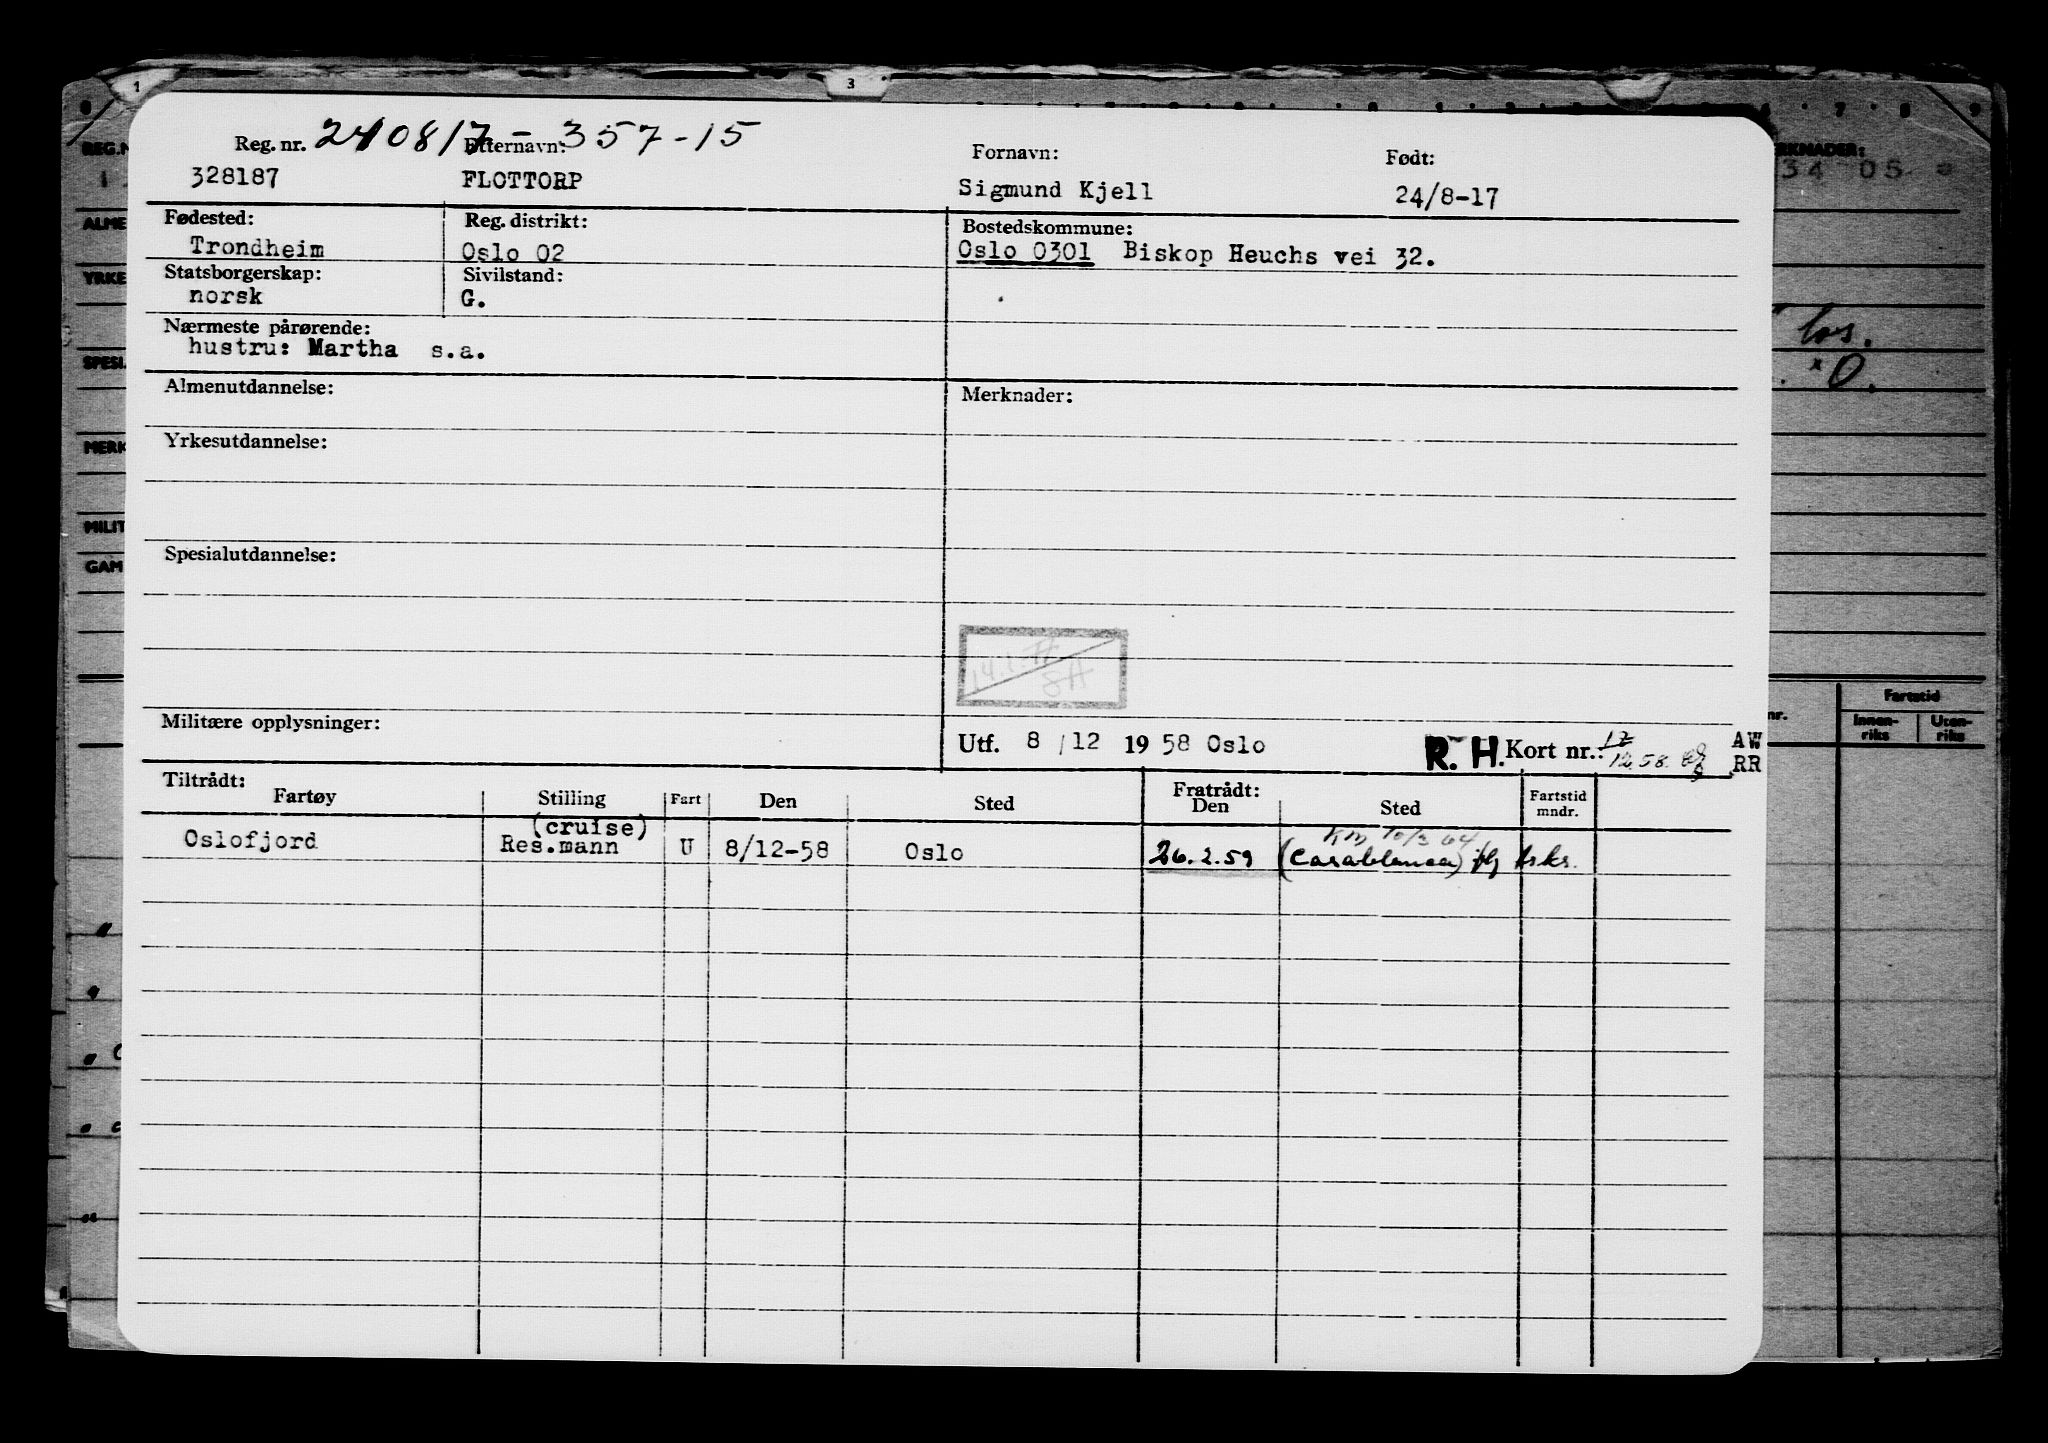 1 3
0 7 8 9
REG.N
RKNADER:
34 05
ALME
YRKE
SPESI.
MERK
MILIT
GAM
los.
x O.
nr. Fartstid
Innen-riks Uten-riks
240817-357-15
Reg. nr. Etternavn: Fornavn: Født:
328187 FLOTTORP Sigmund Kjell 24/8-17
Fødested: Reg. distrikt: Bostedskommune:
Trondheim Oslo 02 Oslo 0301 Biskop Heuchs vei 32.
Statsborgerskap: Sivilstand:
norsk G.
Nærmeste pårørende:
hustru: Martha s.a.
Almenutdannelse: Merknader:
Yrkesutdannelse:
Spesialutdannelse:
Militære opplysninger:
Utf. 8/12 1958 Oslo R. H. Kort nr.: 12.58. AW
RR
Tiltrådt: Fratrådt:
Fartøy Stilling Fart Den Sted Den Sted Fartstid mndr.
(cruise)
Oslofjord Res.mann U 8/12-58 Oslo 26.2.59 (Casablanca)